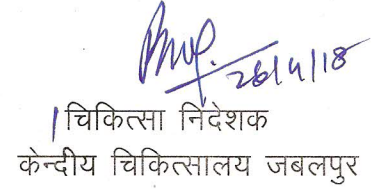 26/4/18
चिकित्सा निदेशक
केन्दीय चिकित्सालय जबलपुर